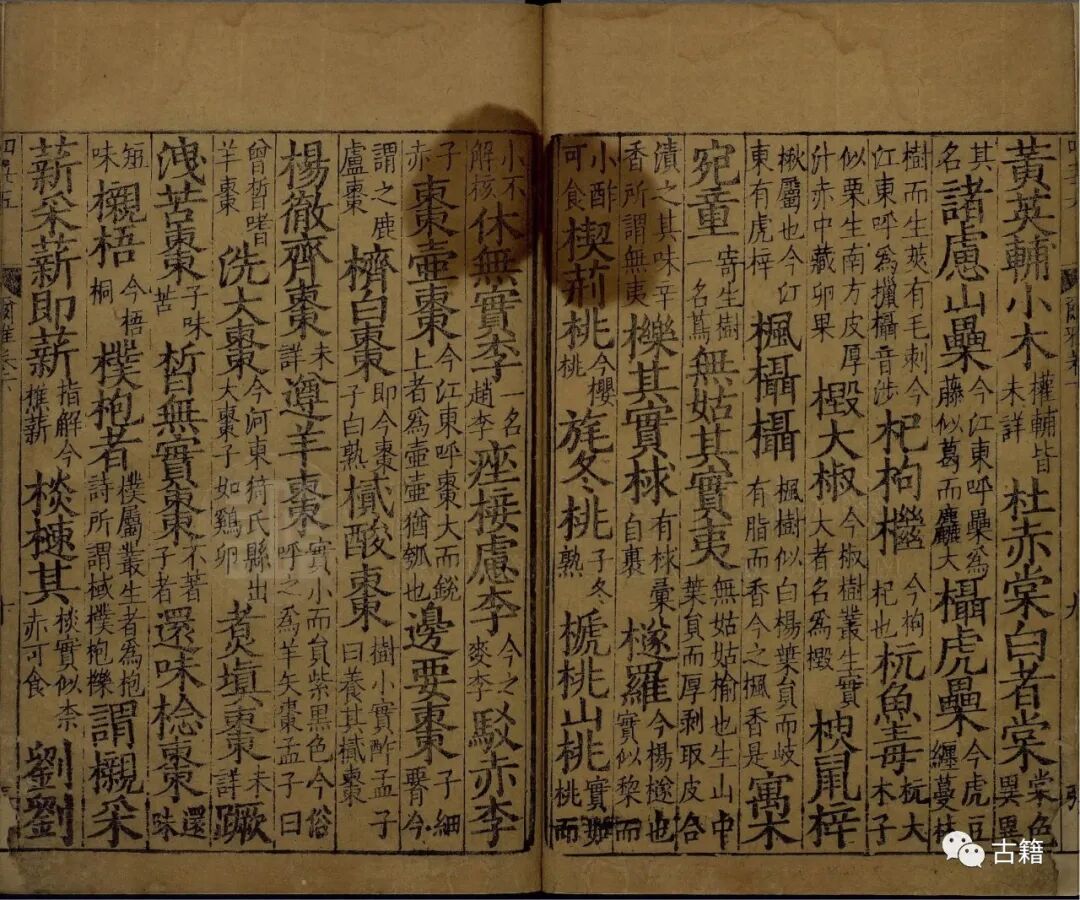 黃英輔小木權輔皆未詳杜赤棠白者棠棠色異異
其名諸慮山櫐今江東呼櫐為藤似葛而麤大欇虎櫐今虎豆纏蔓林
樹而生莢有毛刺今江東呼為㯿欇音涉杞枸檵今枸杞也杬魚毒杬大木子
似栗生南方皮厚汁赤中藏卵果檓大椒今椒樹叢生實大者名為檓楰鼠梓
楸屬也今江東有虎梓楓欇欇楓樹似白楊葉員而岐有脂而香今之楓香是寓木
宛童寄生樹一名蔦無姑其實夷無姑姑榆也生山中葉員而厚剥取皮合
漬之其味辛香所謂無夷櫟其實梂有梂彙自裹檖羅今楊檖也實似梨而
小酢可食楔荊桃今櫻桃旄冬桃子冬熟榹桃山桃實桃而
小不解核休無實李一名趙李痤椄慮李今之麥李駁赤李
子赤棗壺棗今江東呼棗大而銳上者為壺壺猶瓠也邊要棗子細今
謂之鹿盧棗櫅白棗即今棗子白熟樲酸棗樹小實酢孟子曰養其樲棗
楊徹齊棗未詳遵羊棗實小而員紫黑色今俗呼之為羊矢棗孟子曰
曾晳嗜羊棗洗大棗今河東猗氏縣出大棗子如鷄卵煮填棗未詳蹶
洩苦棗子味苦晳無實棗不著子者還味棯棗還味
短味櫬梧今梧桐樸枹者樸屬叢生者為枹詩所謂棫樸枹櫟謂櫬采
薪采薪即薪指解今樵薪棪樕其棪實似柰赤可食劉劉
古籍